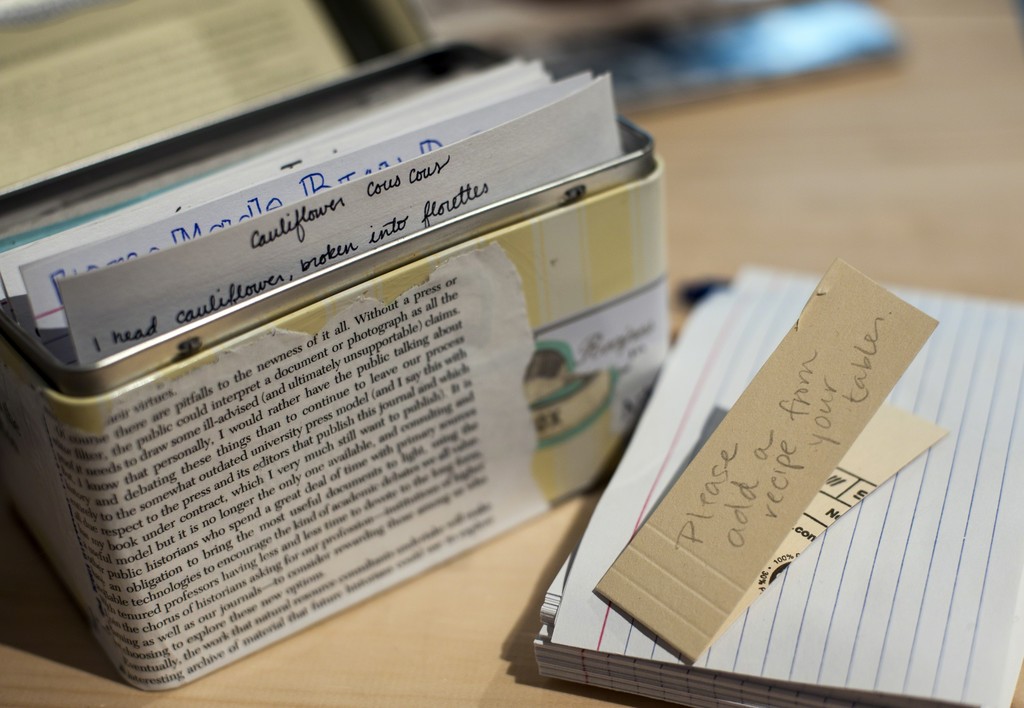 cauliflower cous cous
1 head cauliflower, broken into florettes
their virtues.
Of course there are pitfalls to the newness of it all. Without a press or
filter, the public could interpret a document or photograph as all the
needs to draw some ill-advised (and ultimately unsupportable) claims.
I know that personally, I would rather have the public talking about
and debating these things than to continue to leave our process
to the somewhat outdated university press model (and I say this with
respect to the press and its editors that publish this journal and which
my book under contract, which I very much still want to publish). It is
model but it is no longer the only one available, and consulting and
public historians who spend a great deal of time with primary sources
an obligation to bring the most useful documents to light, using the
technologies to encourage the kind of academic debates we all value
tenured professors having less and less time to devote to the long form,
the chorus of historians asking for our profession—institutions of higher
as well as our journals—to consider rewarding those
choosing to explore these new options.
Eventually, the work that natural resource consultants undertake will make
interesting archive of material that future historians could use to
Recipes
BOX
Please
add a
recipe from
your
table.
.com
100%